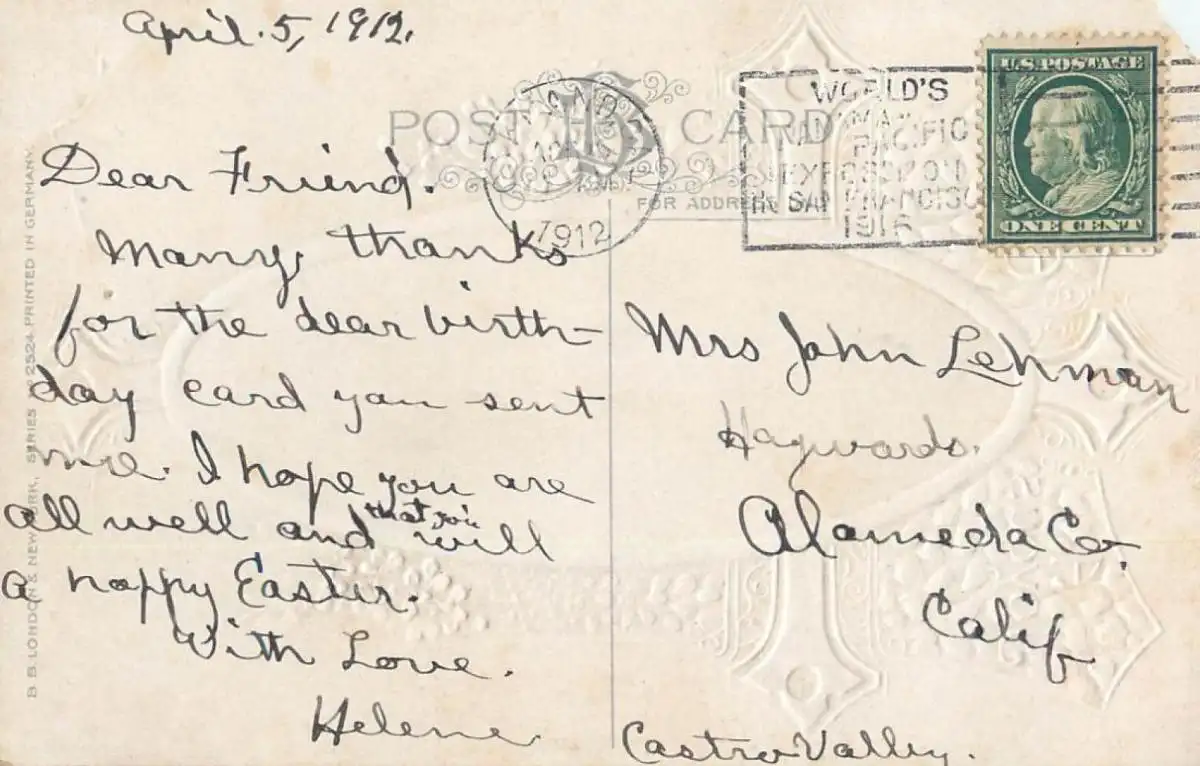 April. 5, 1912.
POST CARD
FOR ADDRESS
1912
WORLD'S
PACIFIC
EXPOSITION
IN SAN FRANCISCO
1915
U.S. POSTAGE
ONE CENT
Dear Friend.
Many, thanks
for the dear birth-
day card you sent
me. I hope you are
all well and that you will
a happy Easter.
With Love.
Helene.
Mrs John Lehman
Haywards.
Alameda Co.
Calif
Castro Valley.
B. B. LONDON & NEW YORK, SERIES No 2524 PRINTED IN GERMANY.